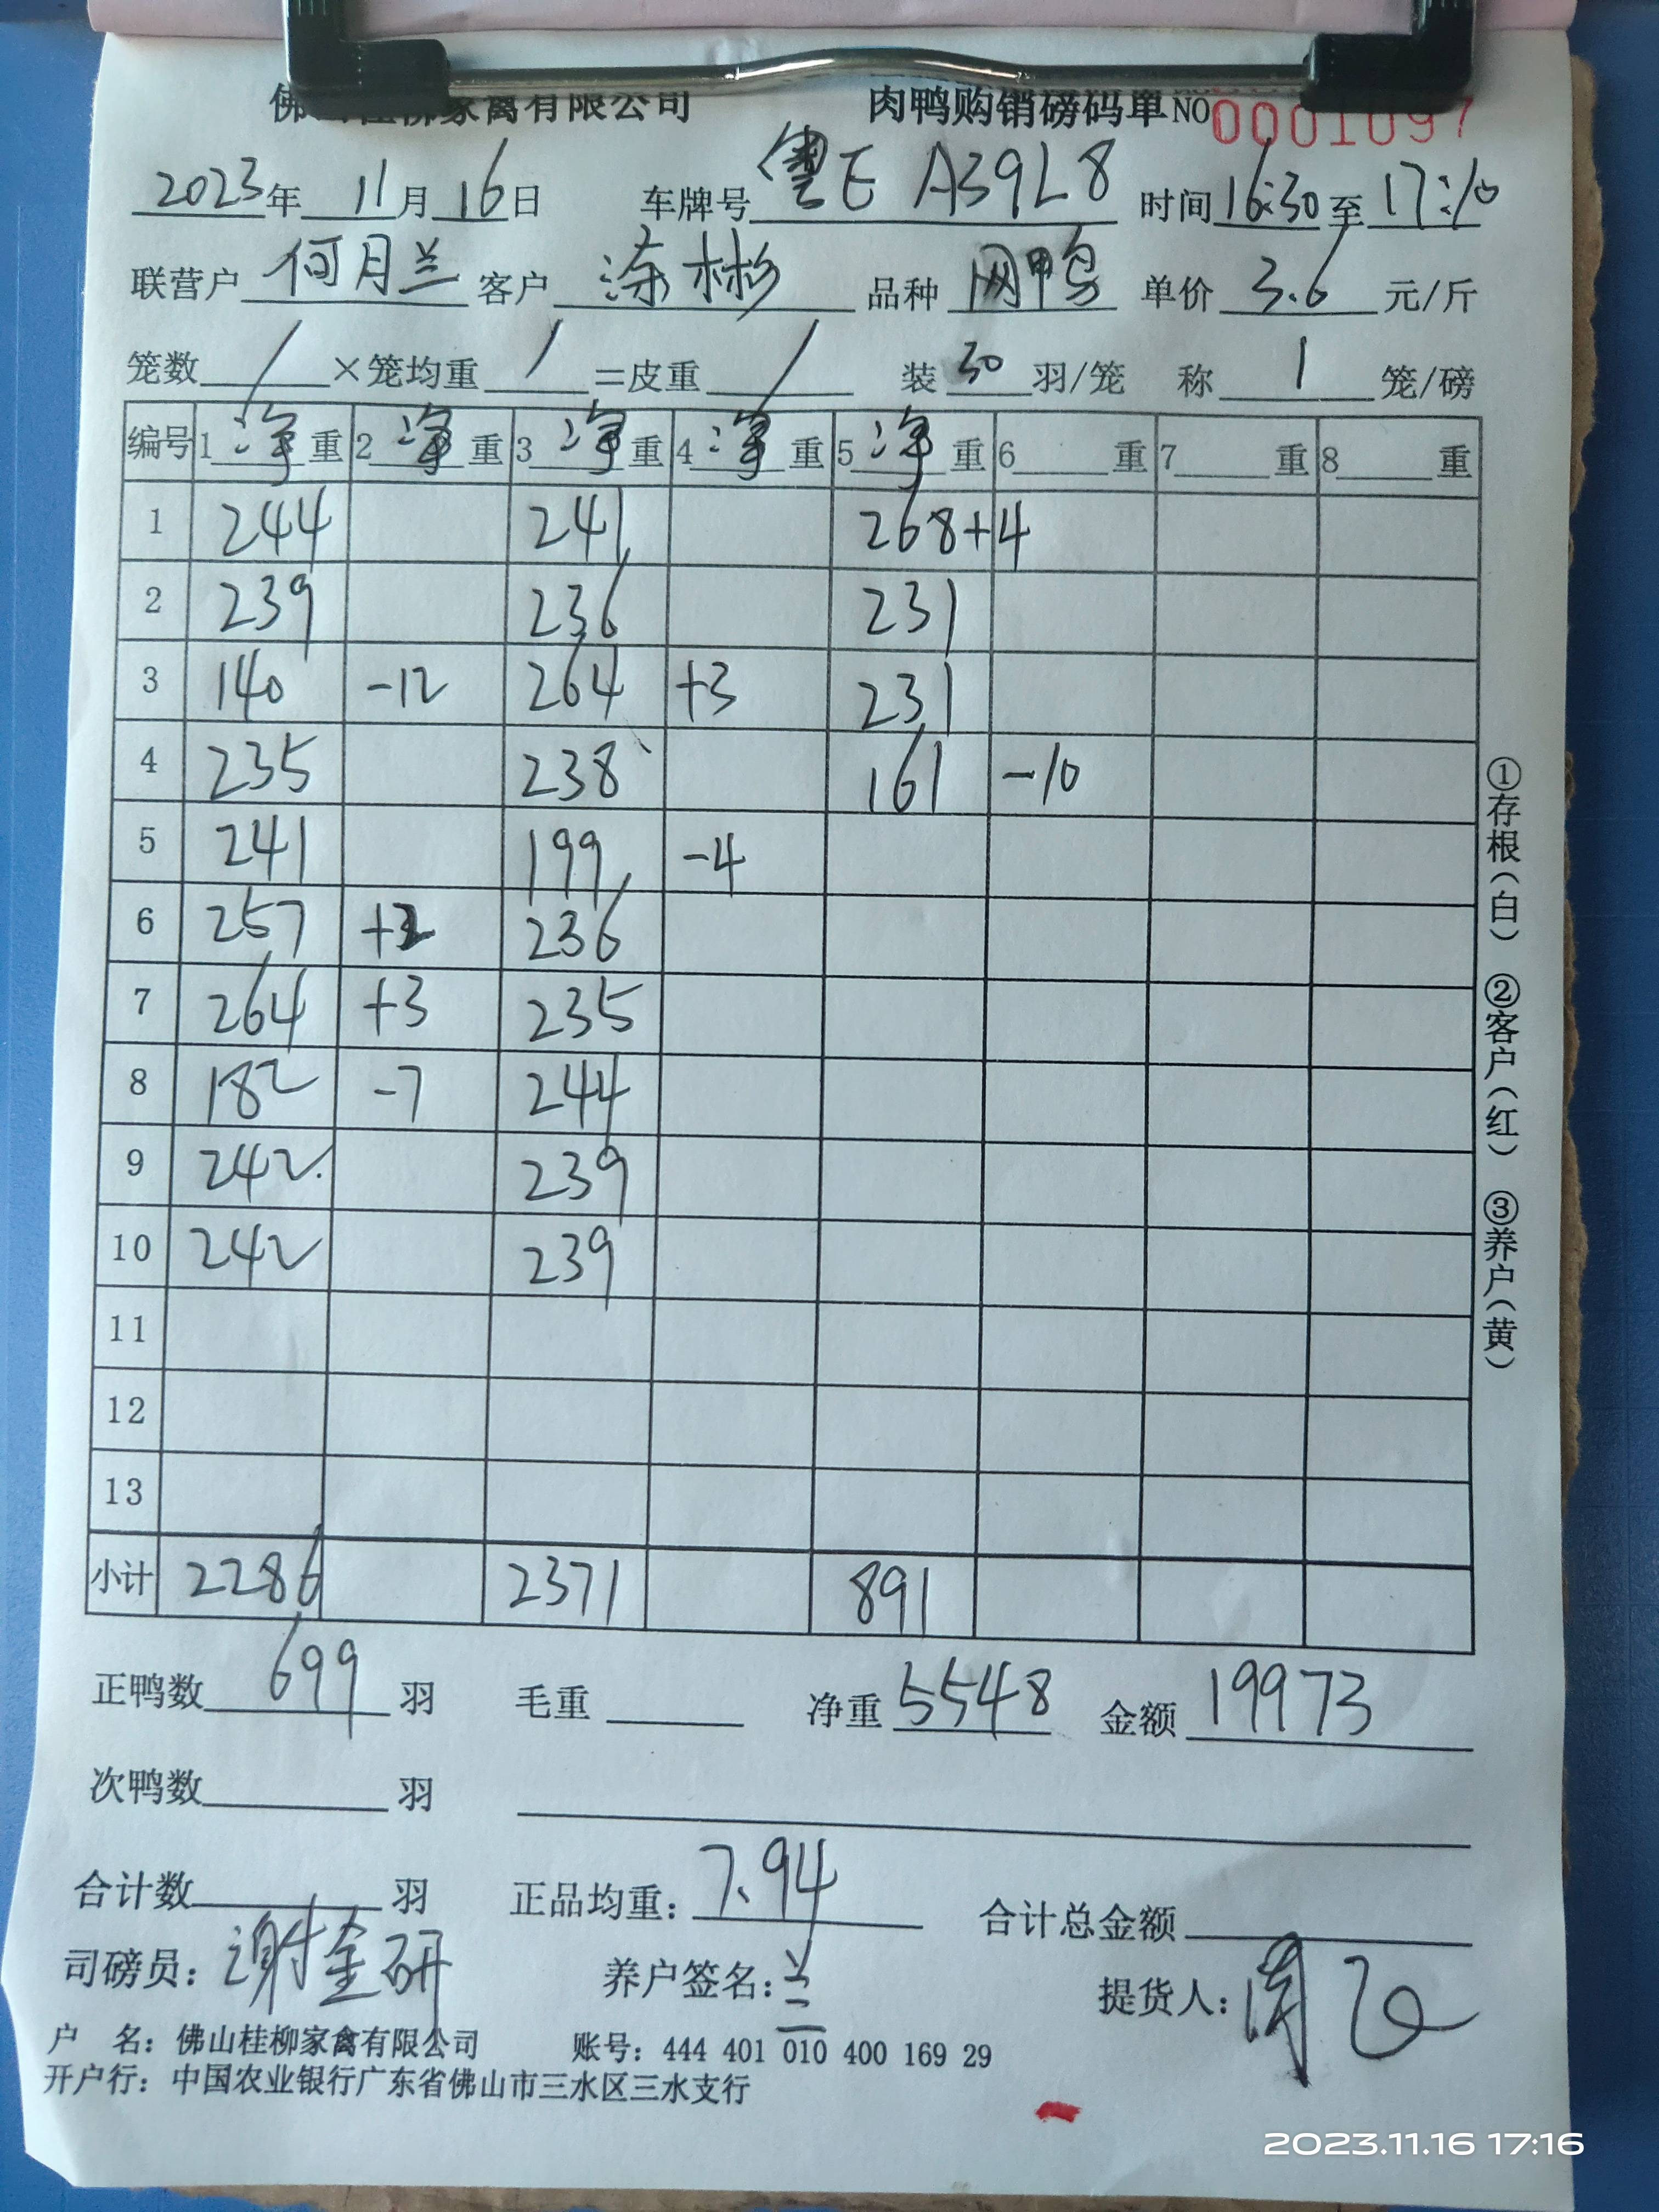 佛山桂柳家禽有限公司 肉鸭购销磅码单 NO 0001097
2023年 11月 16日 车牌号 粤E A39L8 时间 16:30 至 17:10
联营户 何月兰 客户 涂彬 品种 网鸭 单价 3.6 元/斤
笼数 / ×笼均重 / =皮重 / 装 30 羽/笼 称 1 笼/磅
编号 1 净 重 2 净 重 3 净 重 4 净 重 5 净 重 6 重 7 重 8 重
1 244 241 268+4
2 239 236 231
3 140 -12 264 +3 231
4 235 238 161 -10
5 241 199 -4
6 257 +2 236
7 264 +3 235
8 182 -7 244
9 242 239
10 242 239
11
12
13
小计 2286 2371 891
正鸭数 699 羽 毛重 净重 5548 金额 19973
次鸭数 羽
合计数 羽 正品均重: 7.94 合计总金额
司磅员: 谢金研 养户签名: 兰 提货人:
户 名: 佛山桂柳家禽有限公司 账号: 444 401 010 400 169 29
开户行: 中国农业银行广东省佛山市三水区三水支行
①存根(白) ②客户(红) ③养户(黄)
2023.11.16 17:16